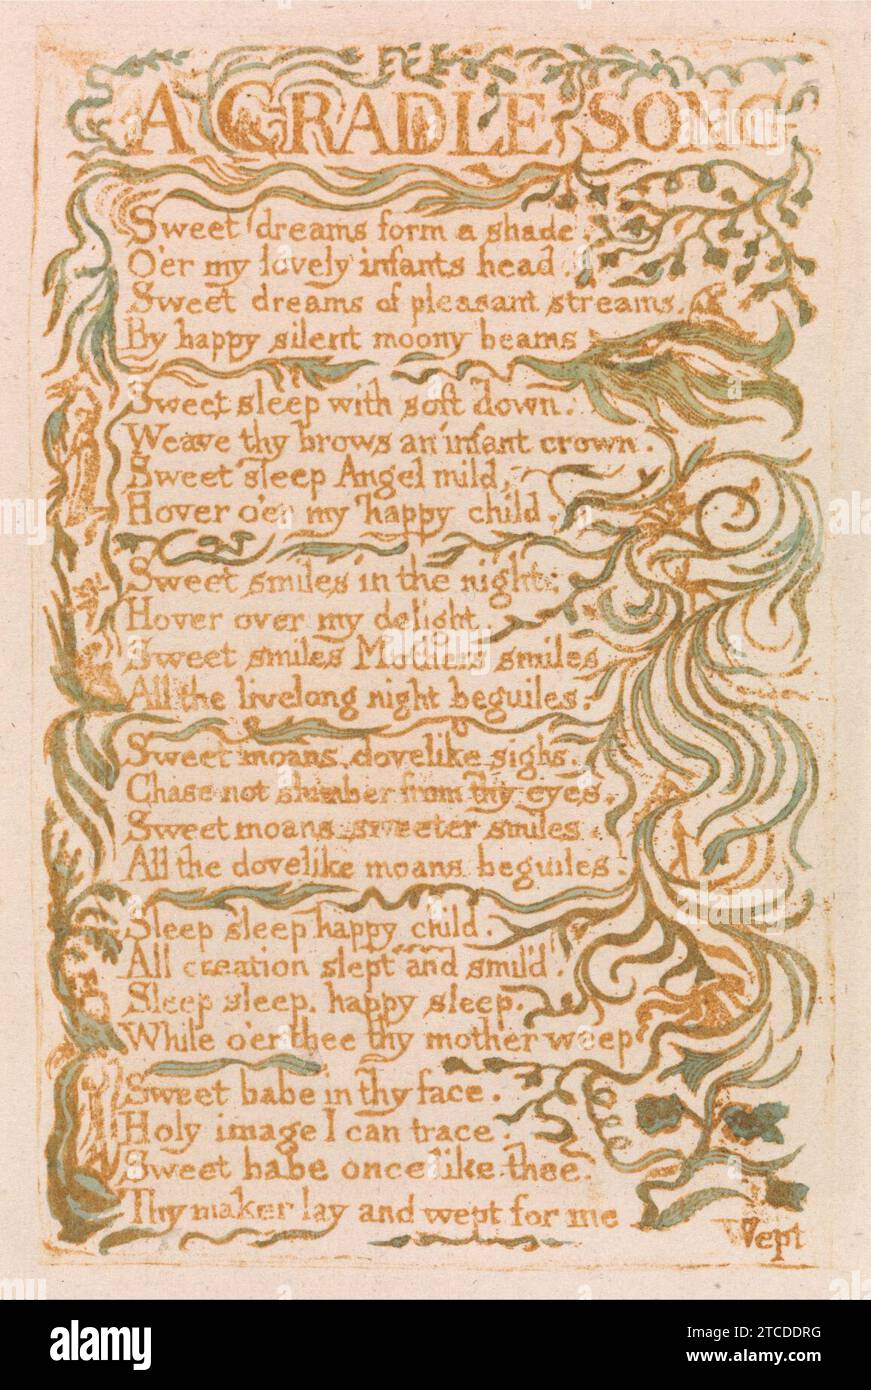 A CRADLE SONG
Sweet dreams form a shade.
O'er my lovely infants head.
Sweet dreams of pleasant streams.
By happy silent moony beams
Sweet sleep with soft down.
Weave thy brows an infant crown.
Sweet sleep Angel mild,
Hover o'er my happy child.
Sweet smiles in the night.
Hover over my delight.
Sweet smiles Mothers smiles
All the livelong night beguiles.
Sweet moans, dovelike sighs.
Chase not slumber from thy eyes.
Sweet moans, sweeter smiles
All the dovelike moans beguiles.
Sleep sleep happy child.
All creation slept and smil'd.
Sleep sleep, happy sleep.
While o'er thee thy mother weep
Sweet babe in thy face.
Holy image I can trace.
Sweet babe once like thee.
Thy maker lay and wept for me
Wept
alamy
Image ID: 2TCDDRG
www.alamy.com